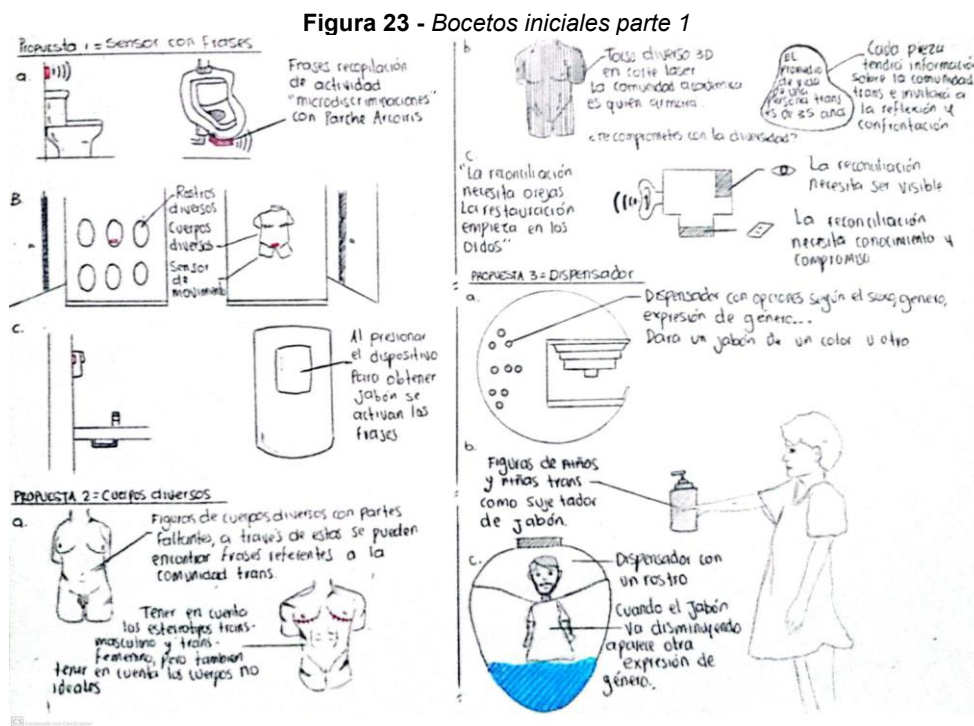 Figura 23 - Bocetos iniciales parte 1
PROPUESTA 1 = Sensor con Frases
a.
Frases recopilación
de actividad
"microdiscriminaciones"
con Parche Arcoiris
B.
Rostros
diversos
Cuerpos
diversos
Sensor
de
movimiento
C.
Al presionar
el dispositivo
para obtener
jabón se
activan las
frases
PROPUESTA 2 = Cuerpos diversos
a.
Figuras de cuerpos diversos con partes
faltantes, a través de estas se pueden
encontrar frases referentes a la
comunidad trans.
Tener en cuenta
los estereotipos trans-
masculino y trans-
femenino, pero tambien
tener en cuenta los cuerpos no
ideales
b
Torso diverso 3D
en corte laser
La comunidad académica
es quien armara.
EL
promedio
de vida
de una
persona trans
es de 35 años
Cada pieza
tendrá información
sobre la comunidad
trans e invitará a
la reflexión y
confrontación
¿te comprometes con la diversidad?
C.
"La reconciliación
necesita orejas
La restauración
empieza en los
oidos"
La reconciliación
necesita ser visible
La reconciliación
necesita conocimiento y
compromiso
PROPUESTA 3 = Dispensador
a.
Dispensador con opciones según el sexo, genero,
expresión de género...
Dara un jabón de un color u otro
b.
Figuras de niños
y niñas trans
como sujetador
de jabón.
C.
Dispensador con
un rostro
Cuando el jabón
va disminuyendo
aparece otra
expresión de
género.
CS